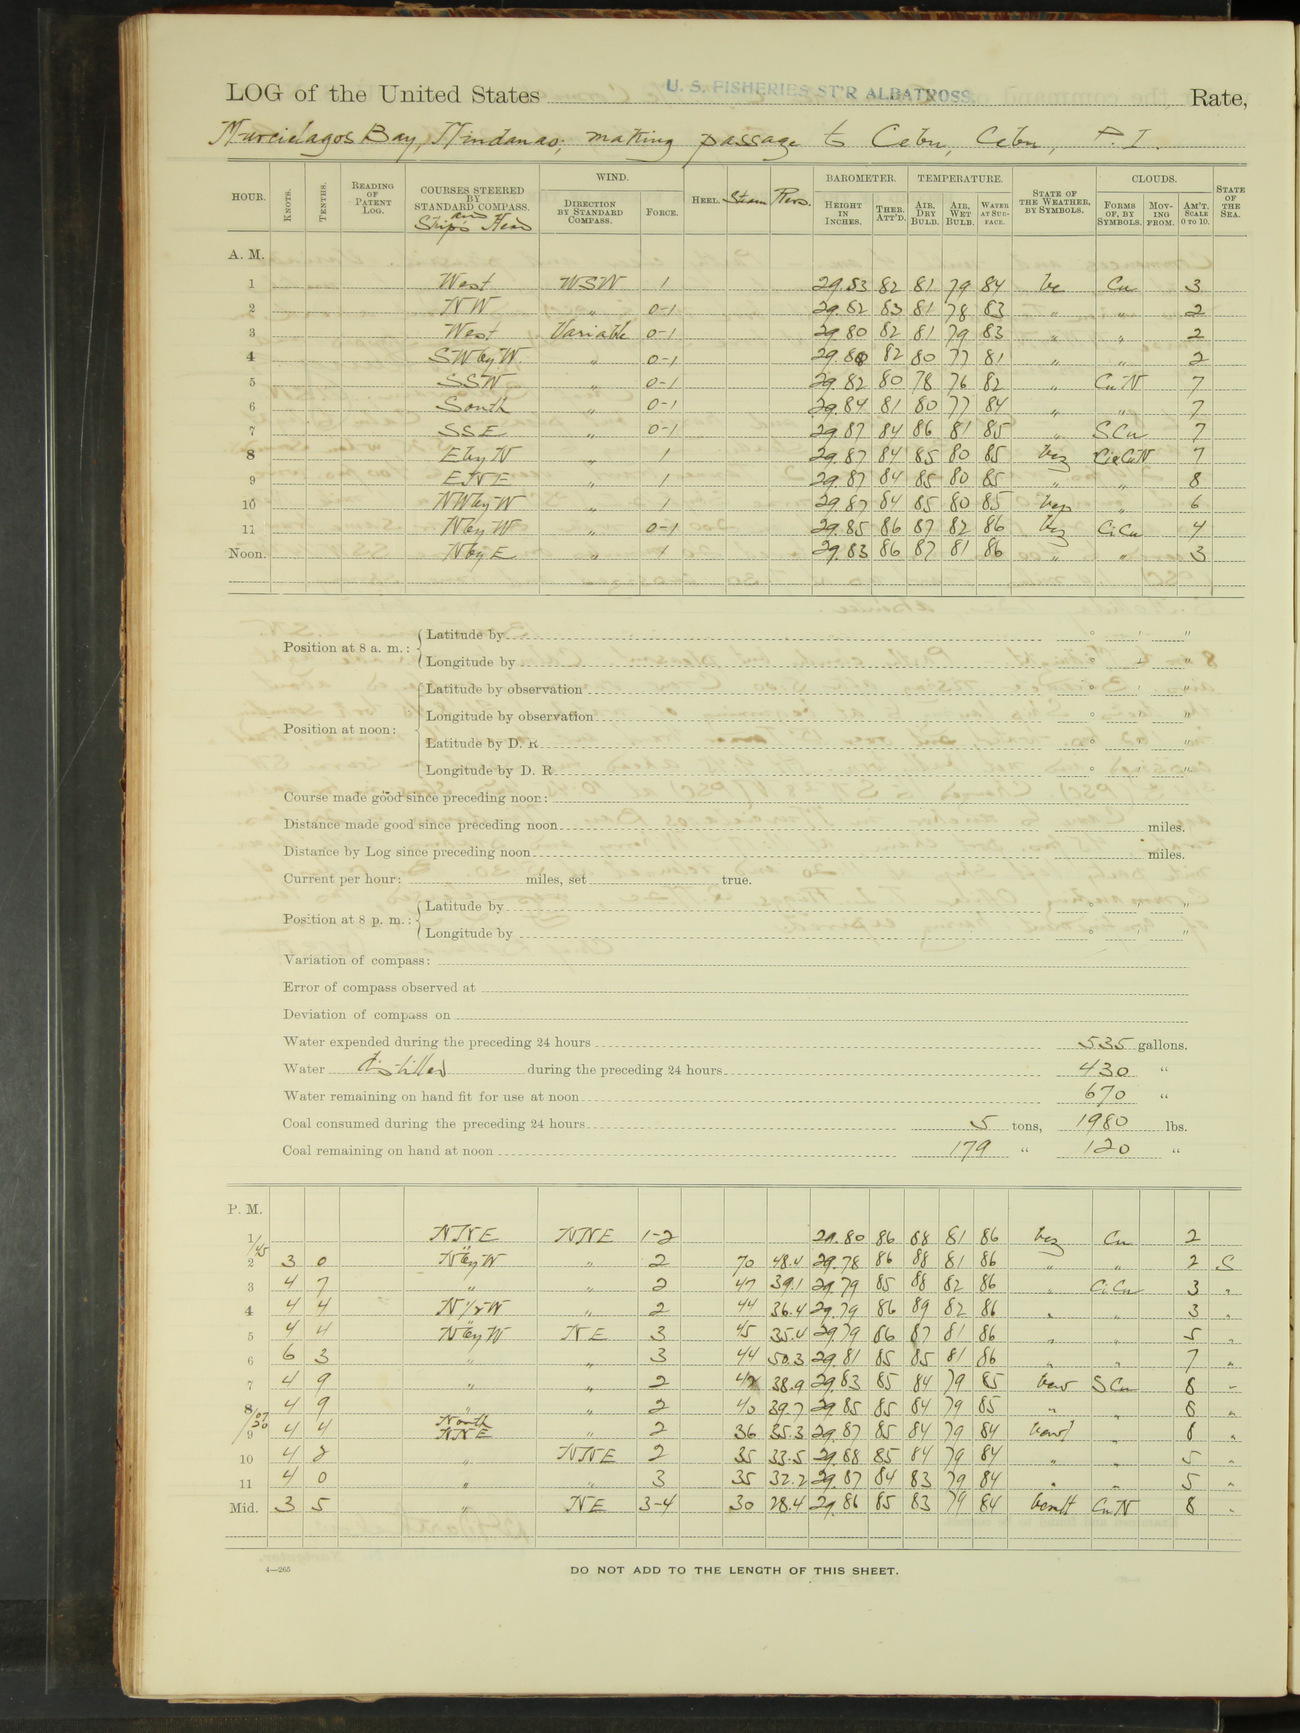 LOG of the United States U. S. FISHERIES ST'R ALBATROSS. Rate,
Murcielagos Bay, Mindanao; making passage to Cebu, Cebu, P. I.
HOUR. KNOTS. TENTHS. READING OF PATENT LOG. COURSES STEERED BY STANDARD COMPASS. and Ship's Head WIND. DIRECTION BY STANDARD COMPASS. FORCE. HEEL. Steam Revs. BAROMETER. HEIGHT IN INCHES. THER. ATT'D. TEMPERATURE. AIR, DRY BULB. AIR, WET BULB. WATER AT SURFACE. STATE OF THE WEATHER, BY SYMBOLS. CLOUDS. FORMS OF, BY SYMBOLS. MOVING FROM. AM'T. SCALE 0 TO 10. STATE OF THE SEA.
A. M.
1 West WSW 1 29.83 82 81 79 84 bc Cu 3
2 NW " 0-1 29.82 83 81 78 83 " " 2
3 West Variable 0-1 29.80 82 81 79 83 " " 2
4 SWbyW " 0-1 29.80 82 80 77 81 " " 2
5 SSW " 0-1 29.82 80 78 76 82 " CuN 7
6 South " 0-1 29.84 81 80 77 84 " " 7
7 SSE " 0-1 29.87 84 86 81 85 " SCu 7
8 EbyN " 1 29.87 84 85 80 85 bcz 7
9 ENE " 1 29.87 84 85 80 85 " " 8
10 NWbyW " 1 29.87 84 85 80 85 bcp " 6
11 NbyW " 0-1 29.85 86 87 82 86 bcz CiCu 4
Noon. NbyE " 1 29.83 86 87 81 86 " " 3
Position at 8 a. m.: Latitude by ° ' "
Longitude by ° ' "
Position at noon: Latitude by observation ° ' "
Longitude by observation ° ' "
Latitude by D. R. ° ' "
Longitude by D. R. ° ' "
Course made good since preceding noon:
Distance made good since preceding noon miles.
Distance by Log since preceding noon miles.
Current per hour: miles, set true.
Position at 8 p. m.: Latitude by ° ' "
Longitude by ° ' "
Variation of compass:
Error of compass observed at
Deviation of compass on
Water expended during the preceding 24 hours 535 gallons.
Water distilled during the preceding 24 hours 430 "
Water remaining on hand fit for use at noon 670 "
Coal consumed during the preceding 24 hours 5 tons, 1980 lbs.
Coal remaining on hand at noon 179 " 120 "
P. M.
1 NNE NNE 1-2 29.80 86 88 81 86 bcz Cu 2
1/45
2 3 0 NbyW " 2 70 48.4 29.78 86 88 81 86 " " 2 S
3 4 7 " " 2 47 39.1 29.79 85 88 82 86 " CiCu 3 "
4 4 4 N1/2W " 2 44 36.4 29.79 86 89 82 86 " " 3 "
5 4 4 NbyW NE 3 45 35.4 29.79 86 87 81 86 " " 5 "
6 6 3 " " 3 44 50.3 29.81 85 85 81 86 " " 7 "
7 4 9 " " 2 42 38.9 29.83 85 84 79 85 SCu 8 "
8 4 9 " " 2 40 39.7 29.85 85 84 79 85 " " 8 "
9 4 4 North NNE " 2 36 35.3 29.87 85 84 79 84 " 8 "
10 4 2 " NNE 2 35 33.5 29.88 85 84 79 84 " " 5 "
11 4 0 " " 3 35 32.2 29.87 84 83 79 84 " " 5 "
Mid. 3 5 " NE 3-4 30 28.4 29.86 85 83 79 84 CuN 8 "
4—265
DO NOT ADD TO THE LENGTH OF THIS SHEET.